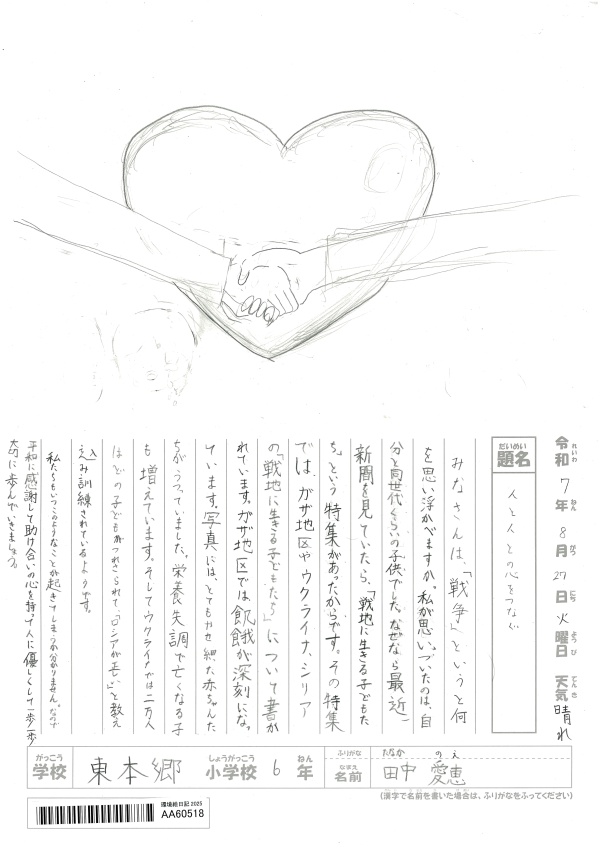 令和 7年 8月 27日 火曜日 天気 晴れ
れいわ ねん がつ にち ようび てんき
だいめい
題名
人と人との心をつなぐ
みなさんは、「戦争」というと何
を思い浮かべますか。私が思いついたのは、自
分と同世代くらいの子供でした。なぜなら最近、
新聞を見ていたら、「戦地に生きる子どもた
ち」という特集があったからです。その特集
では、ガザ地区やウクライナ、シリア
の「戦地に生きる子どもたち」について書か
れています。ガザ地区では、飢餓が深刻にな
ています。写真には、とてもやせ細た赤ちゃんた
ちがうつっていました。栄養失調で亡くなる子
も増えています。そしてウクライナでは二万人
ほどの子どもがつれさられて、「ロシアが正い」と教え
込み訓練されているようです。
私たちもいつこのようなことが起きてしまうか分かりません。なので
平和に感謝して助け合いの心を持って人に優しくして一歩一歩
大切に歩んでいきましょう。
がっこう しょうがっこう ねん
学校 東本郷 小学校 6年
ふりがな たなか のえ
なまえ
名前 田中 愛恵
(漢字で名前を書いた場合は、ふりがなをふってください)
環境絵日記 2025
AA60518